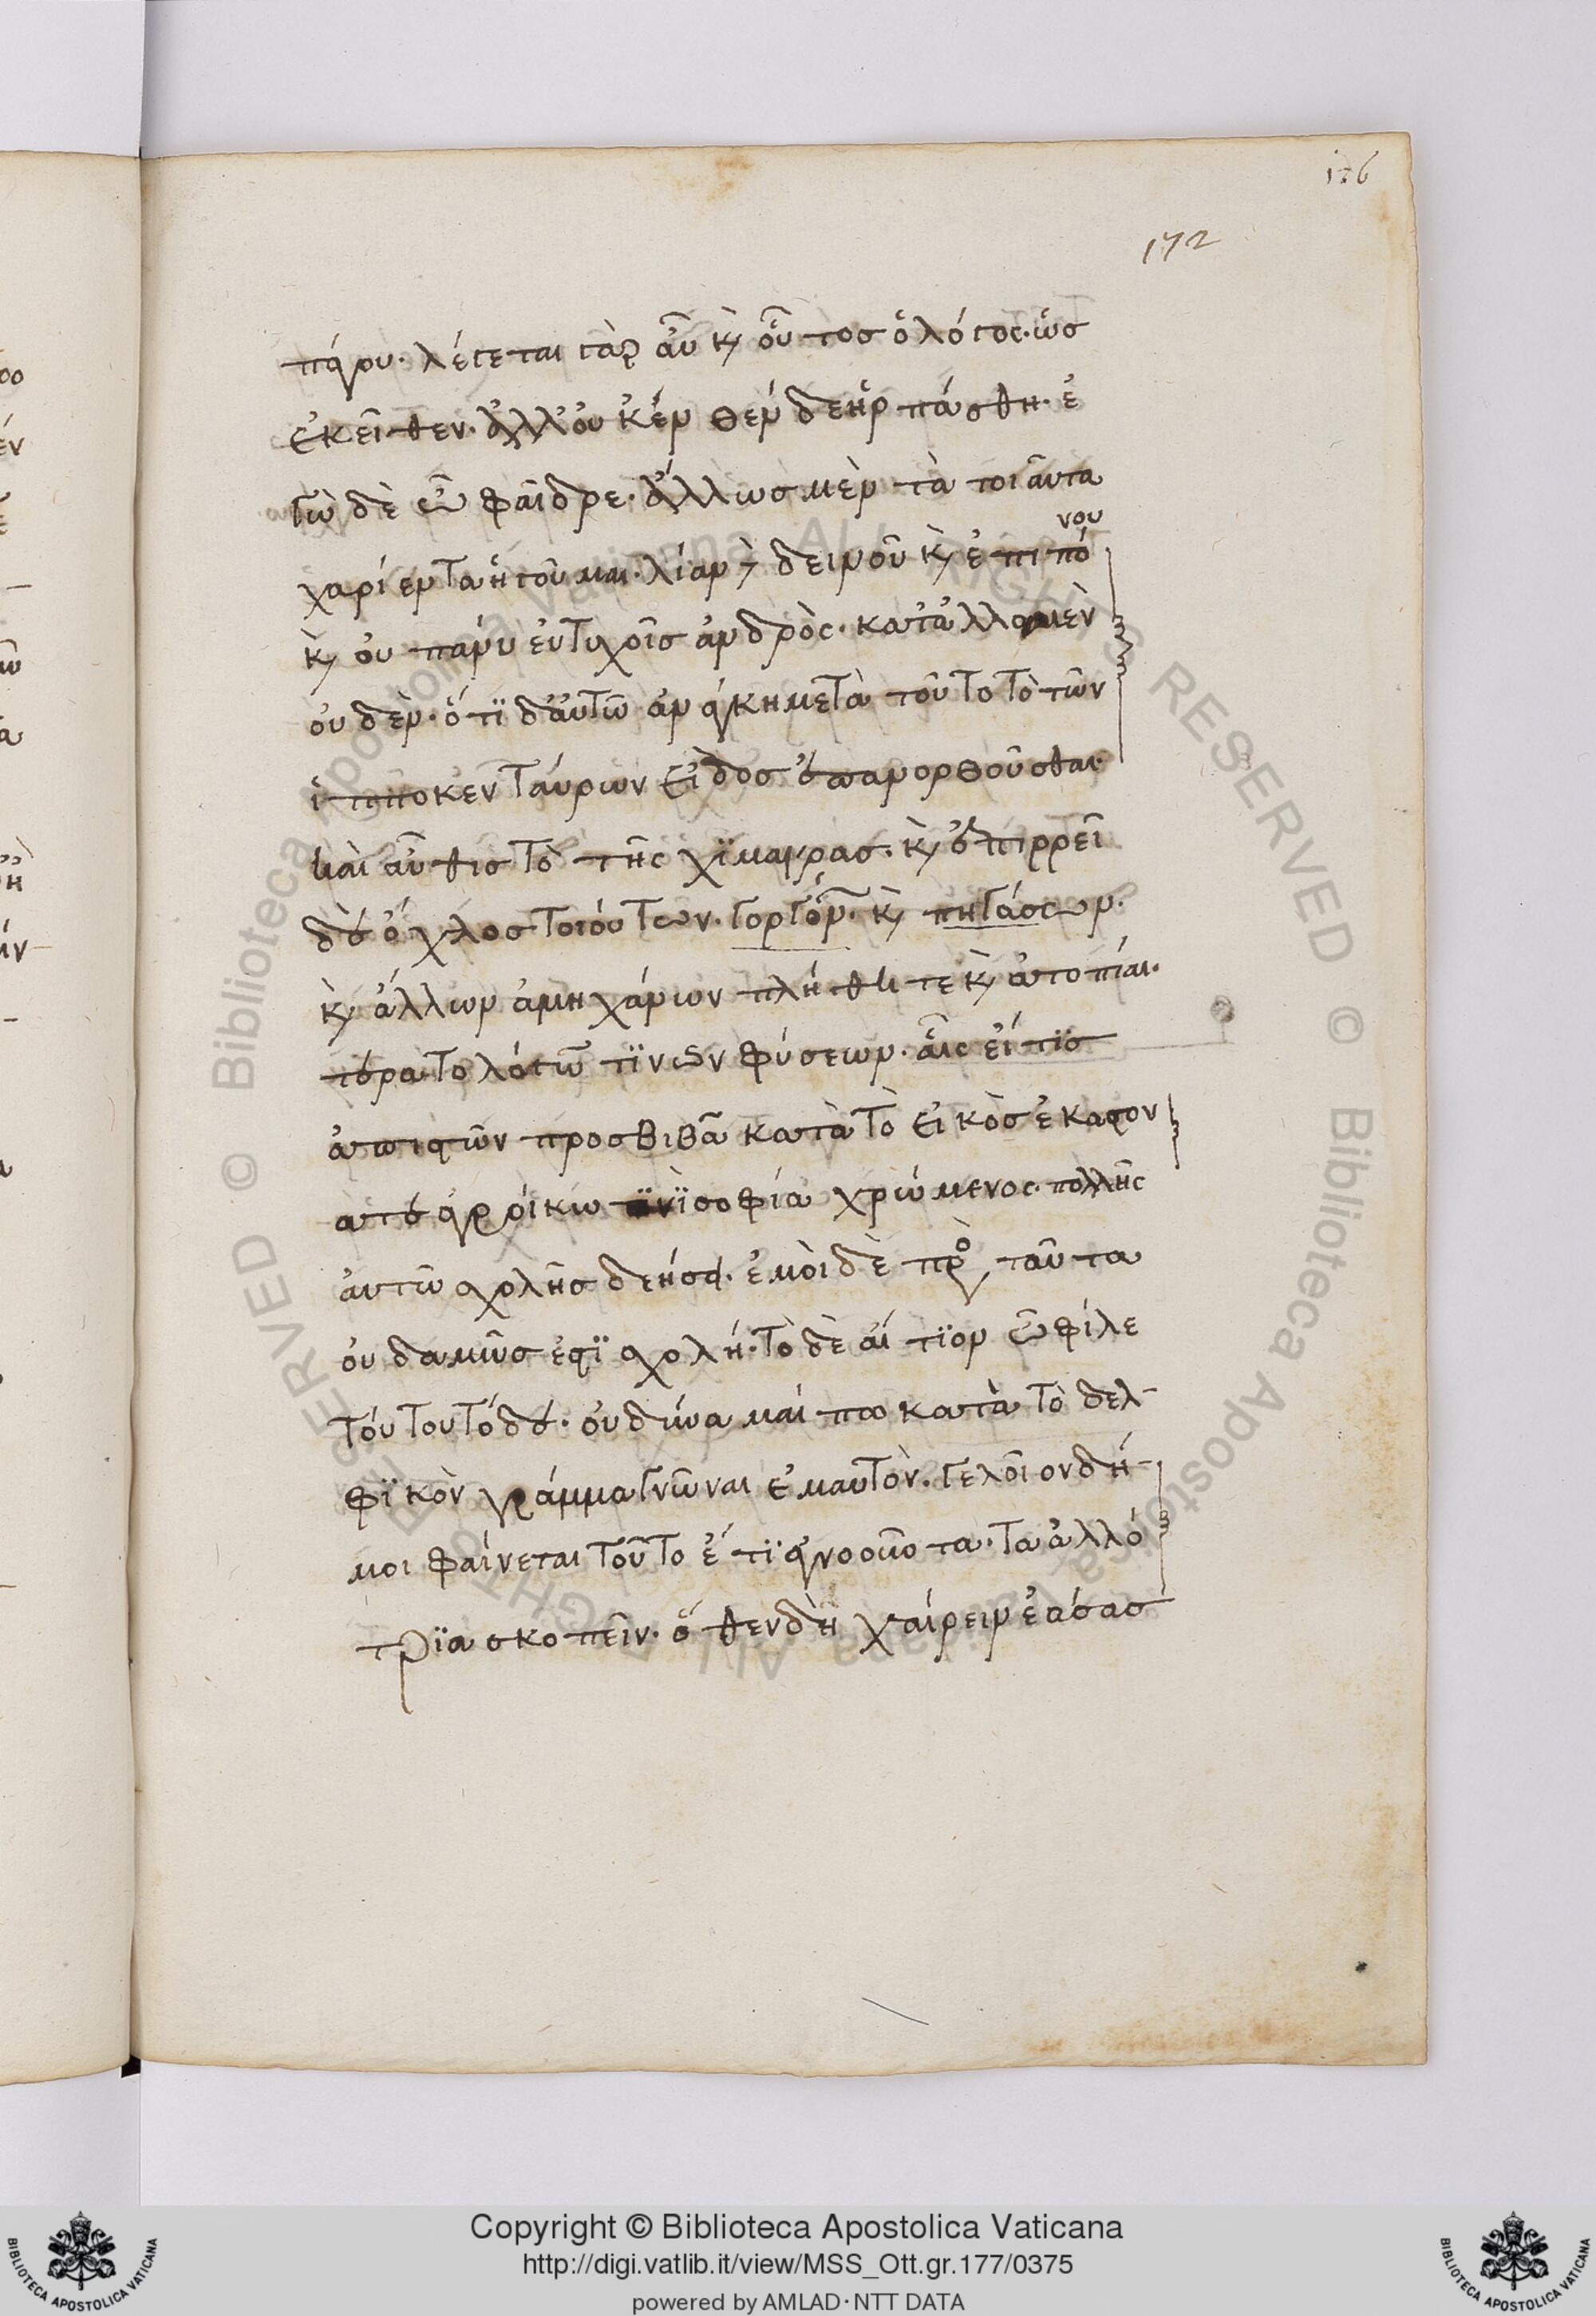 176
172
πάγου. λέγεται γὰρ αὖ κ̀ οὗτος ὁ λόγος. ὡς
ἐκεῖθεν. ἀλλ' οὐκ ἐνθένδε ἡρπάσθη. ἐ
γὼ δὲ ὦ φαῖδρε. ἄλλως μὲν τὰ τοιαῦτα
χαρίεντα ἡγοῦμαι. λίαν δὲ δεινοῦ κ̀ ἐπιπό
νου
κ̀ οὐ πάνυ εὐτυχοῖς ἀνδρὸς. κατ' ἄλλο μὲν
οὐδέν. ὅτι δ' αὐτῶ ἀνάγκη μετὰ τοῦτο τὸ τῶν
ἱπποκενταύρων εἶδος ἐπανορθοῦσθαι.
καὶ αὖθις τὸ τῆς χϊμαιρας. κ̀ ἐπιρρεῖ
δὲ ὄχλος τοιούτων. γοργόνων. κ̀ πηγάσων.
κ̀ ἄλλων ἀμηχάνων πλήθει τε κ̀ ἀτοπίαι.
τερατολόγων τϊνων φύσεων. αἷς εἴ τϊς
ἀπιστῶν προσβιβᾶ κατὰ τὸ εἰκὸς ἕκαστον
ατε ἀγροίκω τϊνὶ σοφία χρώμενος. πολλῆς
αὐτῶ σχολῆς δεήσει. ἐμοὶ δὲ πρὸς ταῦτα
οὐδαμῶς ἐστϊ σχολή. τὸ δὲ αἴτϊον ὦ φίλε
τούτου τόδε. οὐ δύναμαί πω κατὰ τὸ δελ-
φϊκὸν γράμμα γνῶναι ἐμαυτὸν. γελοῖον δή
μοι φαίνεται τοῦτο ἔτϊ ἀγνοοῦντα. τα ἀλλό
τρϊα σκοπεῖν. ὅθεν δὴ χαίρειν ἐάσας
Copyright © Biblioteca Apostolica Vaticana
http://digi.vatlib.it/view/MSS_Ott.gr.177/0375
powered by AMLAD·NTT DATA